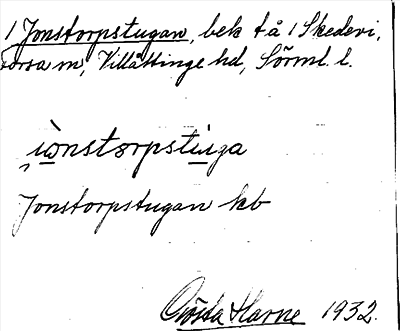 1 Jonstorpstugan, bek t å 1 Skedevi,
Torsa m, Villåttinge hd, Sörml. l.
jònstorpstuga
Jonstorpstugan kb
Gösta Harne 1932.